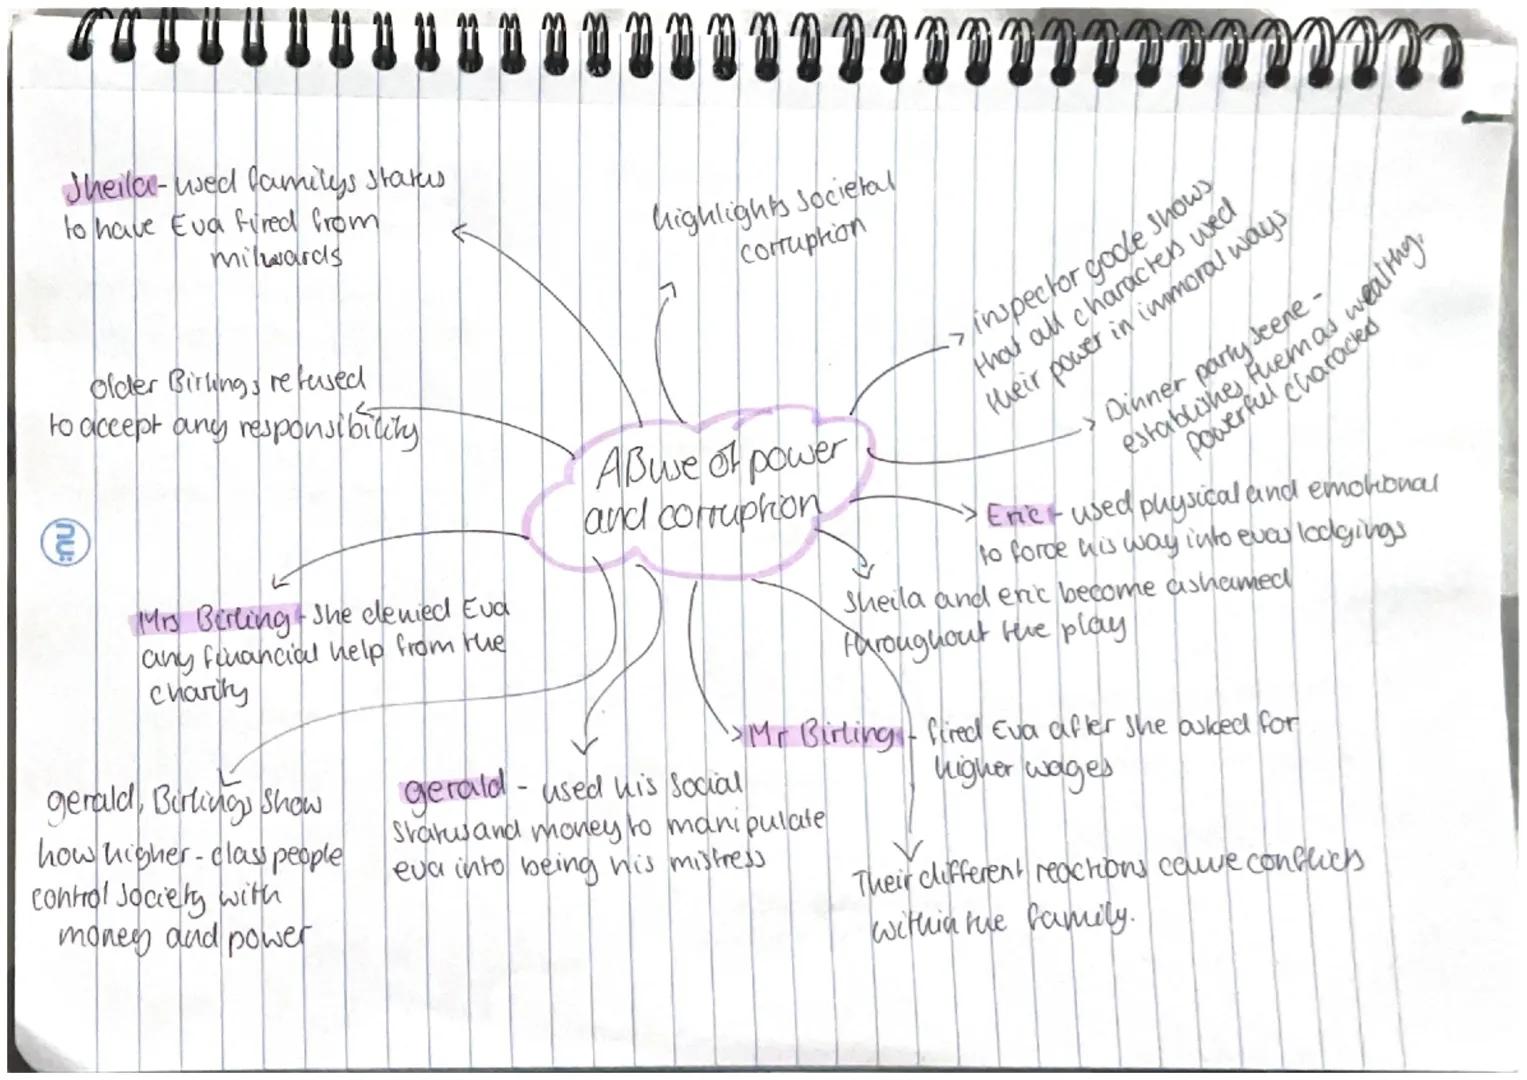 Sheila - used familys status
to have Eva fired from
milwards
highlights societal
corruption
inspector goole shows
that all characters used
their power in immoral ways
Dinner party scene -
establishes them as wealthy,
powerful characters
older Birlings refused
to accept any responsibility
ABuse of power
and corruption
Eric - used physical and emotional
to force his way into evas lodgings
Sheila and eric become ashamed
throughout the play
nu:
Mrs Birling - She denied Eva
any financial help from the
charity
Mr Birling - fired Eva after she asked for
higher wages
gerald, Birlings show
how higher-class people
control society with
money and power
gerald - used his social
status and money to manipulate
eva into being his mistress
Their different reactions cause conflicts
within the family.